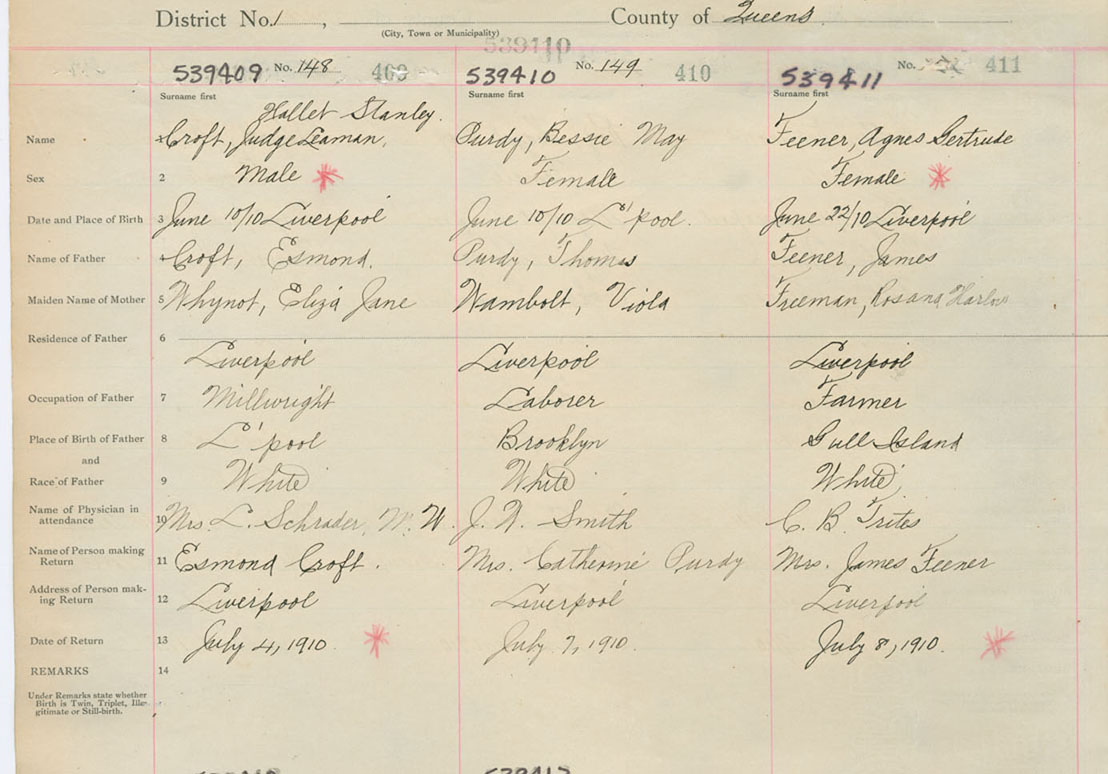 District No. 1, County of Queens
(City, Town or Municipality)
539410
539409 No. 148 409 539410 No. 149 410 539411 No. 411
Surname first Surname first Surname first
Hallet Stanley.
Name Croft, Judge Leaman, Purdy, Bessie May Feener, Agnes Gertrude
Sex 2 Male Female Female
Date and Place of Birth 3 June 10/10 Liverpool June 10/10 L'pool. June 22/10 Liverpool
Name of Father 4 Croft, Esmond. Purdy, Thomas Feener, James
Maiden Name of Mother 5 Whynot, Eliza Jane Wambolt, Viola Freeman, Rosana Harlow
Residence of Father 6
Liverpool Liverpool Liverpool
Occupation of Father 7 Millwright Laborer Farmer
Place of Birth of Father 8 L'pool Brooklyn Gull Island
and
Race of Father 9 White White White
Name of Physician in
attendance 10 Mrs. L. Schrader, M. W. J. W. Smith C. B. Trites
Name of Person making
Return 11 Esmond Croft. Mrs. Catherine Purdy Mrs. James Feener
Address of Person mak-
ing Return 12 Liverpool Liverpool Liverpool
Date of Return 13 July 4, 1910. July 7, 1910. July 8, 1910.
REMARKS 14
Under Remarks state whether
Birth is Twin, Triplet, Ille-
gitimate or Still-birth.